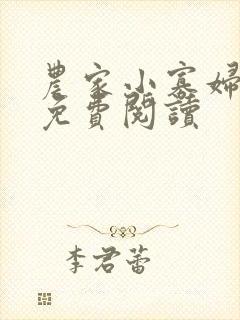 農家小寡婦
免費閱讀
李君蕾